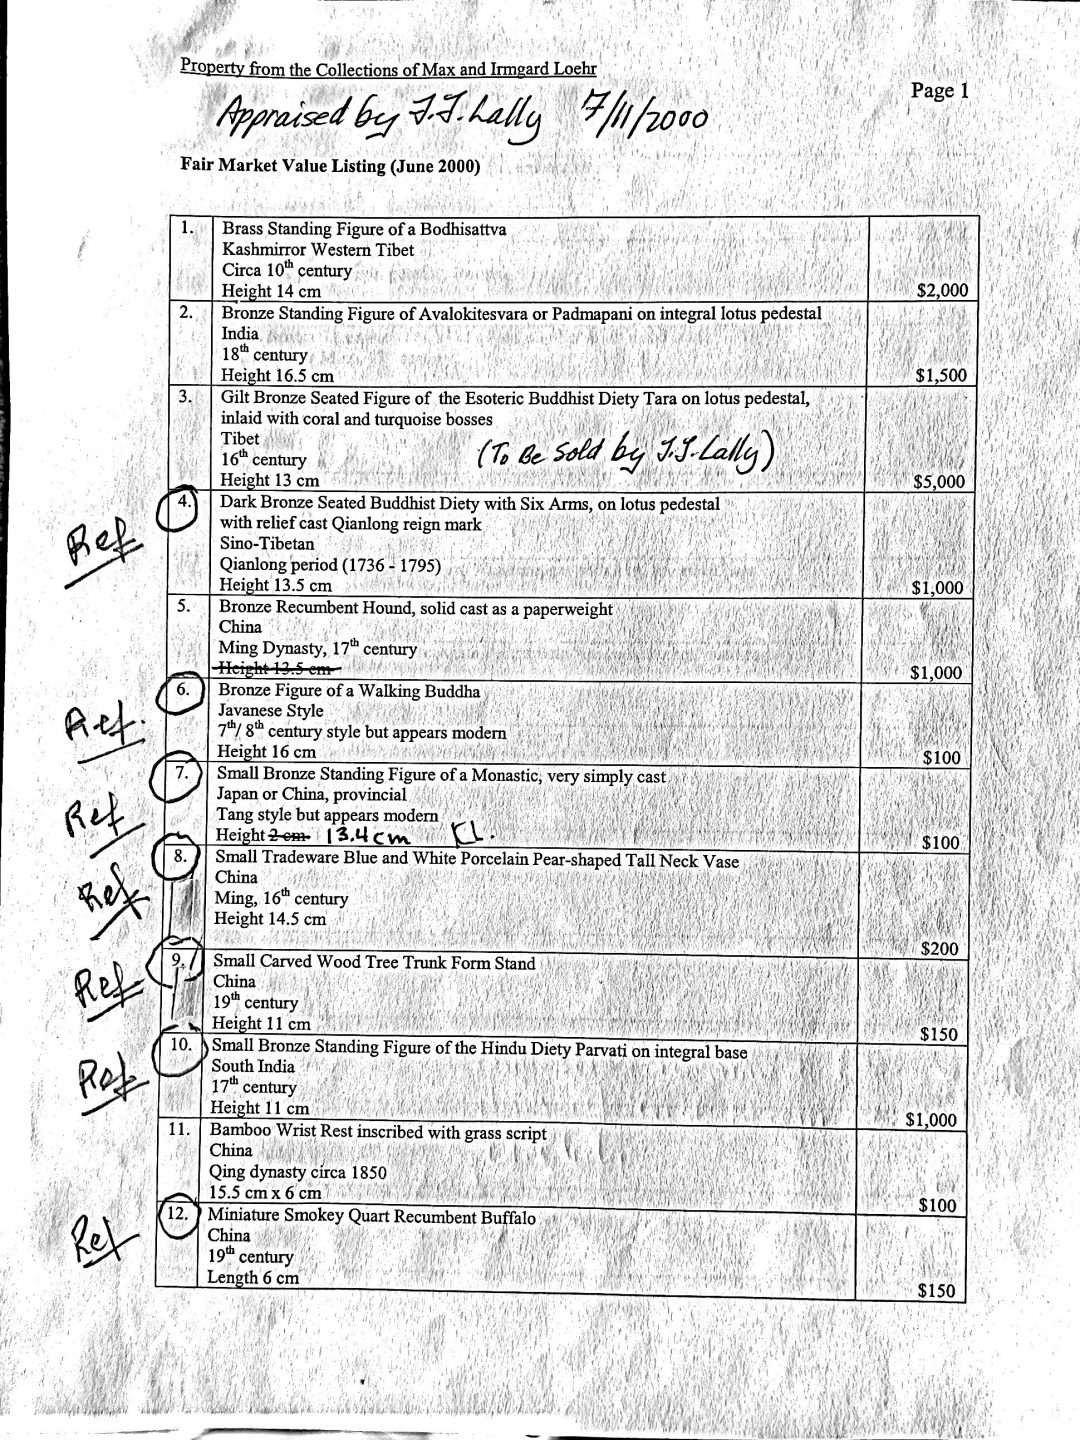 Property from the Collections of Max and Irmgard Loehr
Page 1
Appraised by J.J. Lally 7/11/2000
Fair Market Value Listing (June 2000)
1. Brass Standing Figure of a Bodhisattva
Kashmirror Western Tibet
Circa 10th century
Height 14 cm $2,000
2. Bronze Standing Figure of Avalokitesvara or Padmapani on integral lotus pedestal
India
18th century
Height 16.5 cm $1,500
3. Gilt Bronze Seated Figure of the Esoteric Buddhist Diety Tara on lotus pedestal,
inlaid with coral and turquoise bosses
Tibet
(To Be Sold by J.J. Lally)
16th century
Height 13 cm $5,000
Ref 4. Dark Bronze Seated Buddhist Diety with Six Arms, on lotus pedestal
with relief cast Qianlong reign mark
Sino-Tibetan
Qianlong period (1736 - 1795)
Height 13.5 cm $1,000
5. Bronze Recumbent Hound, solid cast as a paperweight
China
Ming Dynasty, 17th century
Height 13.5 cm $1,000
Ref. 6. Bronze Figure of a Walking Buddha
Javanese Style
7th/ 8th century style but appears modern
Height 16 cm $100
Ref 7. Small Bronze Standing Figure of a Monastic, very simply cast
Japan or China, provincial
Tang style but appears modern
Height 2 cm 13.4 cm KL. $100
Ref 8. Small Tradeware Blue and White Porcelain Pear-shaped Tall Neck Vase
China
Ming, 16th century
Height 14.5 cm
$200
Ref 9. Small Carved Wood Tree Trunk Form Stand
China
19th century
Height 11 cm $150
Ref 10. Small Bronze Standing Figure of the Hindu Diety Parvati on integral base
South India
17th century
Height 11 cm $1,000
11. Bamboo Wrist Rest inscribed with grass script
China
Qing dynasty circa 1850
15.5 cm x 6 cm $100
Ref 12. Miniature Smokey Quart Recumbent Buffalo
China
19th century
Length 6 cm $150